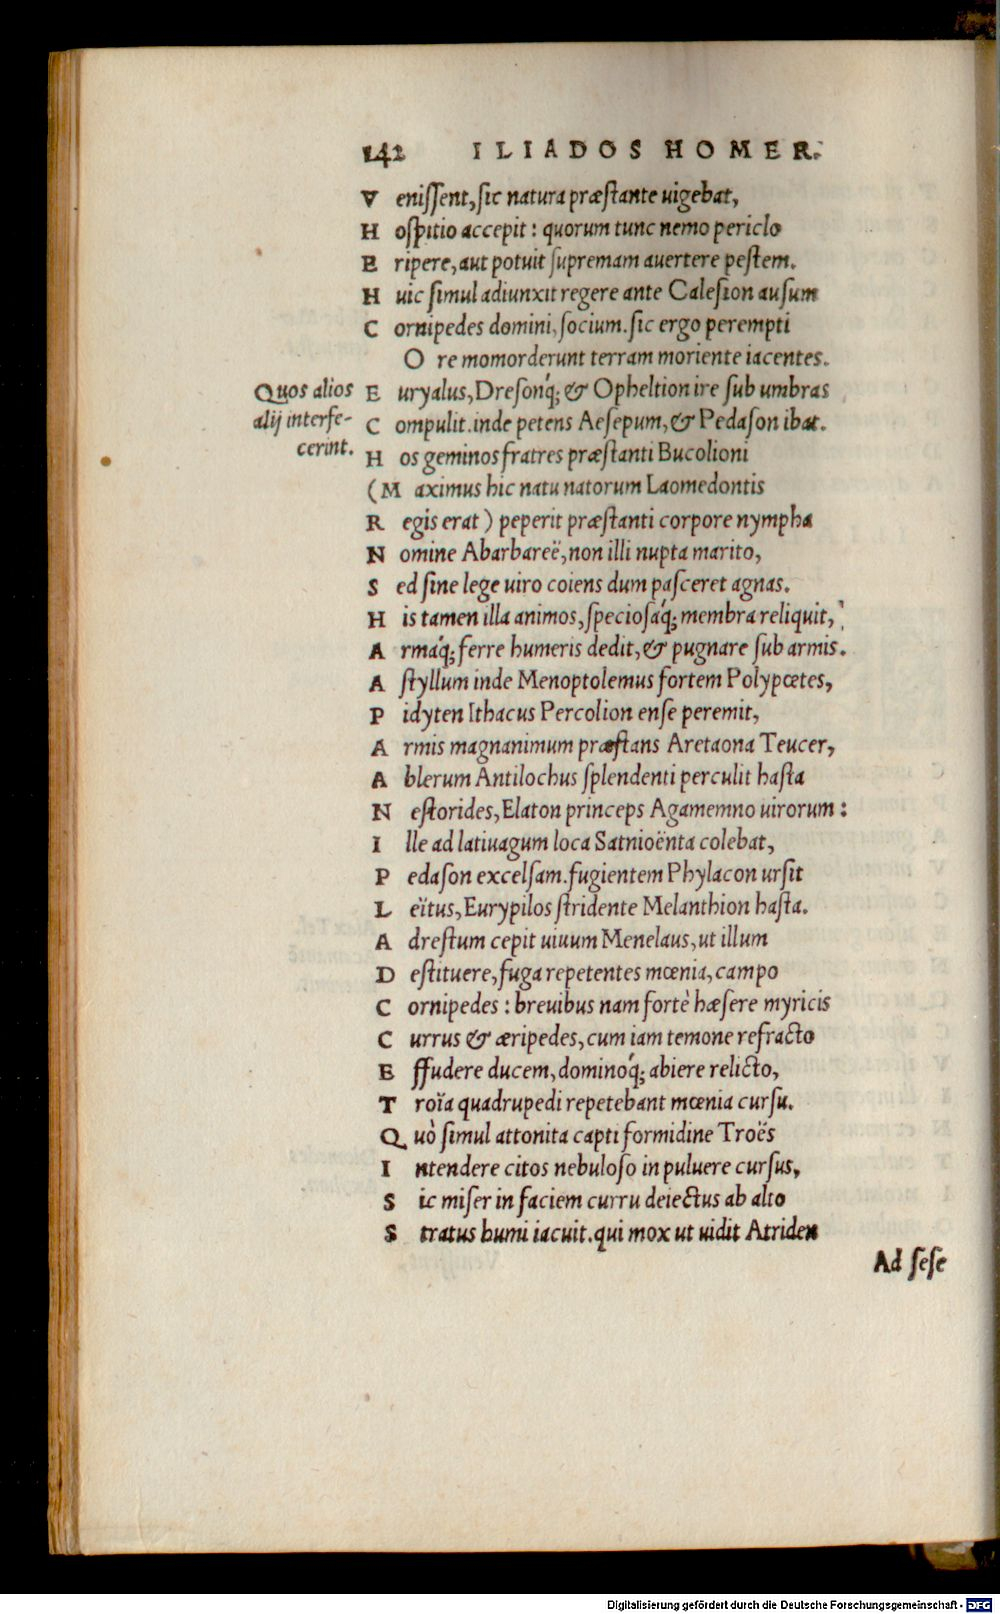 142 ILIADOS HOMER.
Venissent, sic natura præstante uigebat,
Hospitio accepit: quorum tunc nemo periclo
Eripere, aut potuit supremam auertere pestem.
Huic simul adiunxit regere ante Calesion ausum
Cornipedes domini, socium. sic ergo perempti
Ore momorderunt terram moriente iacentes.
Quos alios
alij interfe-
cerint.
Euryalus, Dresonq́; & Opheltion ire sub umbras
Compulit. inde petens Aesepum, & Pedason ibat.
Hos geminos fratres præstanti Bucolioni
(Maximus hic natu natorum Laomedontis
Regis erat) peperit præstanti corpore nympha
Nomine Abarbareë, non illi nupta marito,
Sed sine lege uiro coiens dum pasceret agnas.
His tamen illa animos, speciosaq́; membra reliquit,
Armaq́; ferre humeris dedit, & pugnare sub armis.
Astyllum inde Menoptolemus fortem Polypœtes,
Pidyten Ithacus Percolion ense peremit,
Armis magnanimum præstans Aretaona Teucer,
Ablerum Antilochus splendenti perculit hasta
Nestorides, Elaton princeps Agamemno uirorum:
Ille ad latiuagum loca Satnioënta colebat,
Pedason excelsam. fugientem Phylacon ursit
Leïtus, Eurypilos stridente Melanthion hasta.
Adrestum cepit uiuum Menelaus, ut illum
Destituere, fuga repetentes mœnia, campo
Cornipedes: breuibus nam fortè hæsere myricis
Currus & æripedes, cum iam temone refracto
Effudere ducem, dominoq́; abiere relicto,
Troïa quadrupedi repetebant mœnia cursu.
Quò simul attonita capti formidine Troës
Intendere citos nebuloso in puluere cursus,
Sic miser in faciem curru deiectus ab alto
Stratus humi iacuit. qui mox ut uidit Atriden
Ad sese
Digitalisierung gefördert durch die Deutsche Forschungsgemeinschaft - DFG